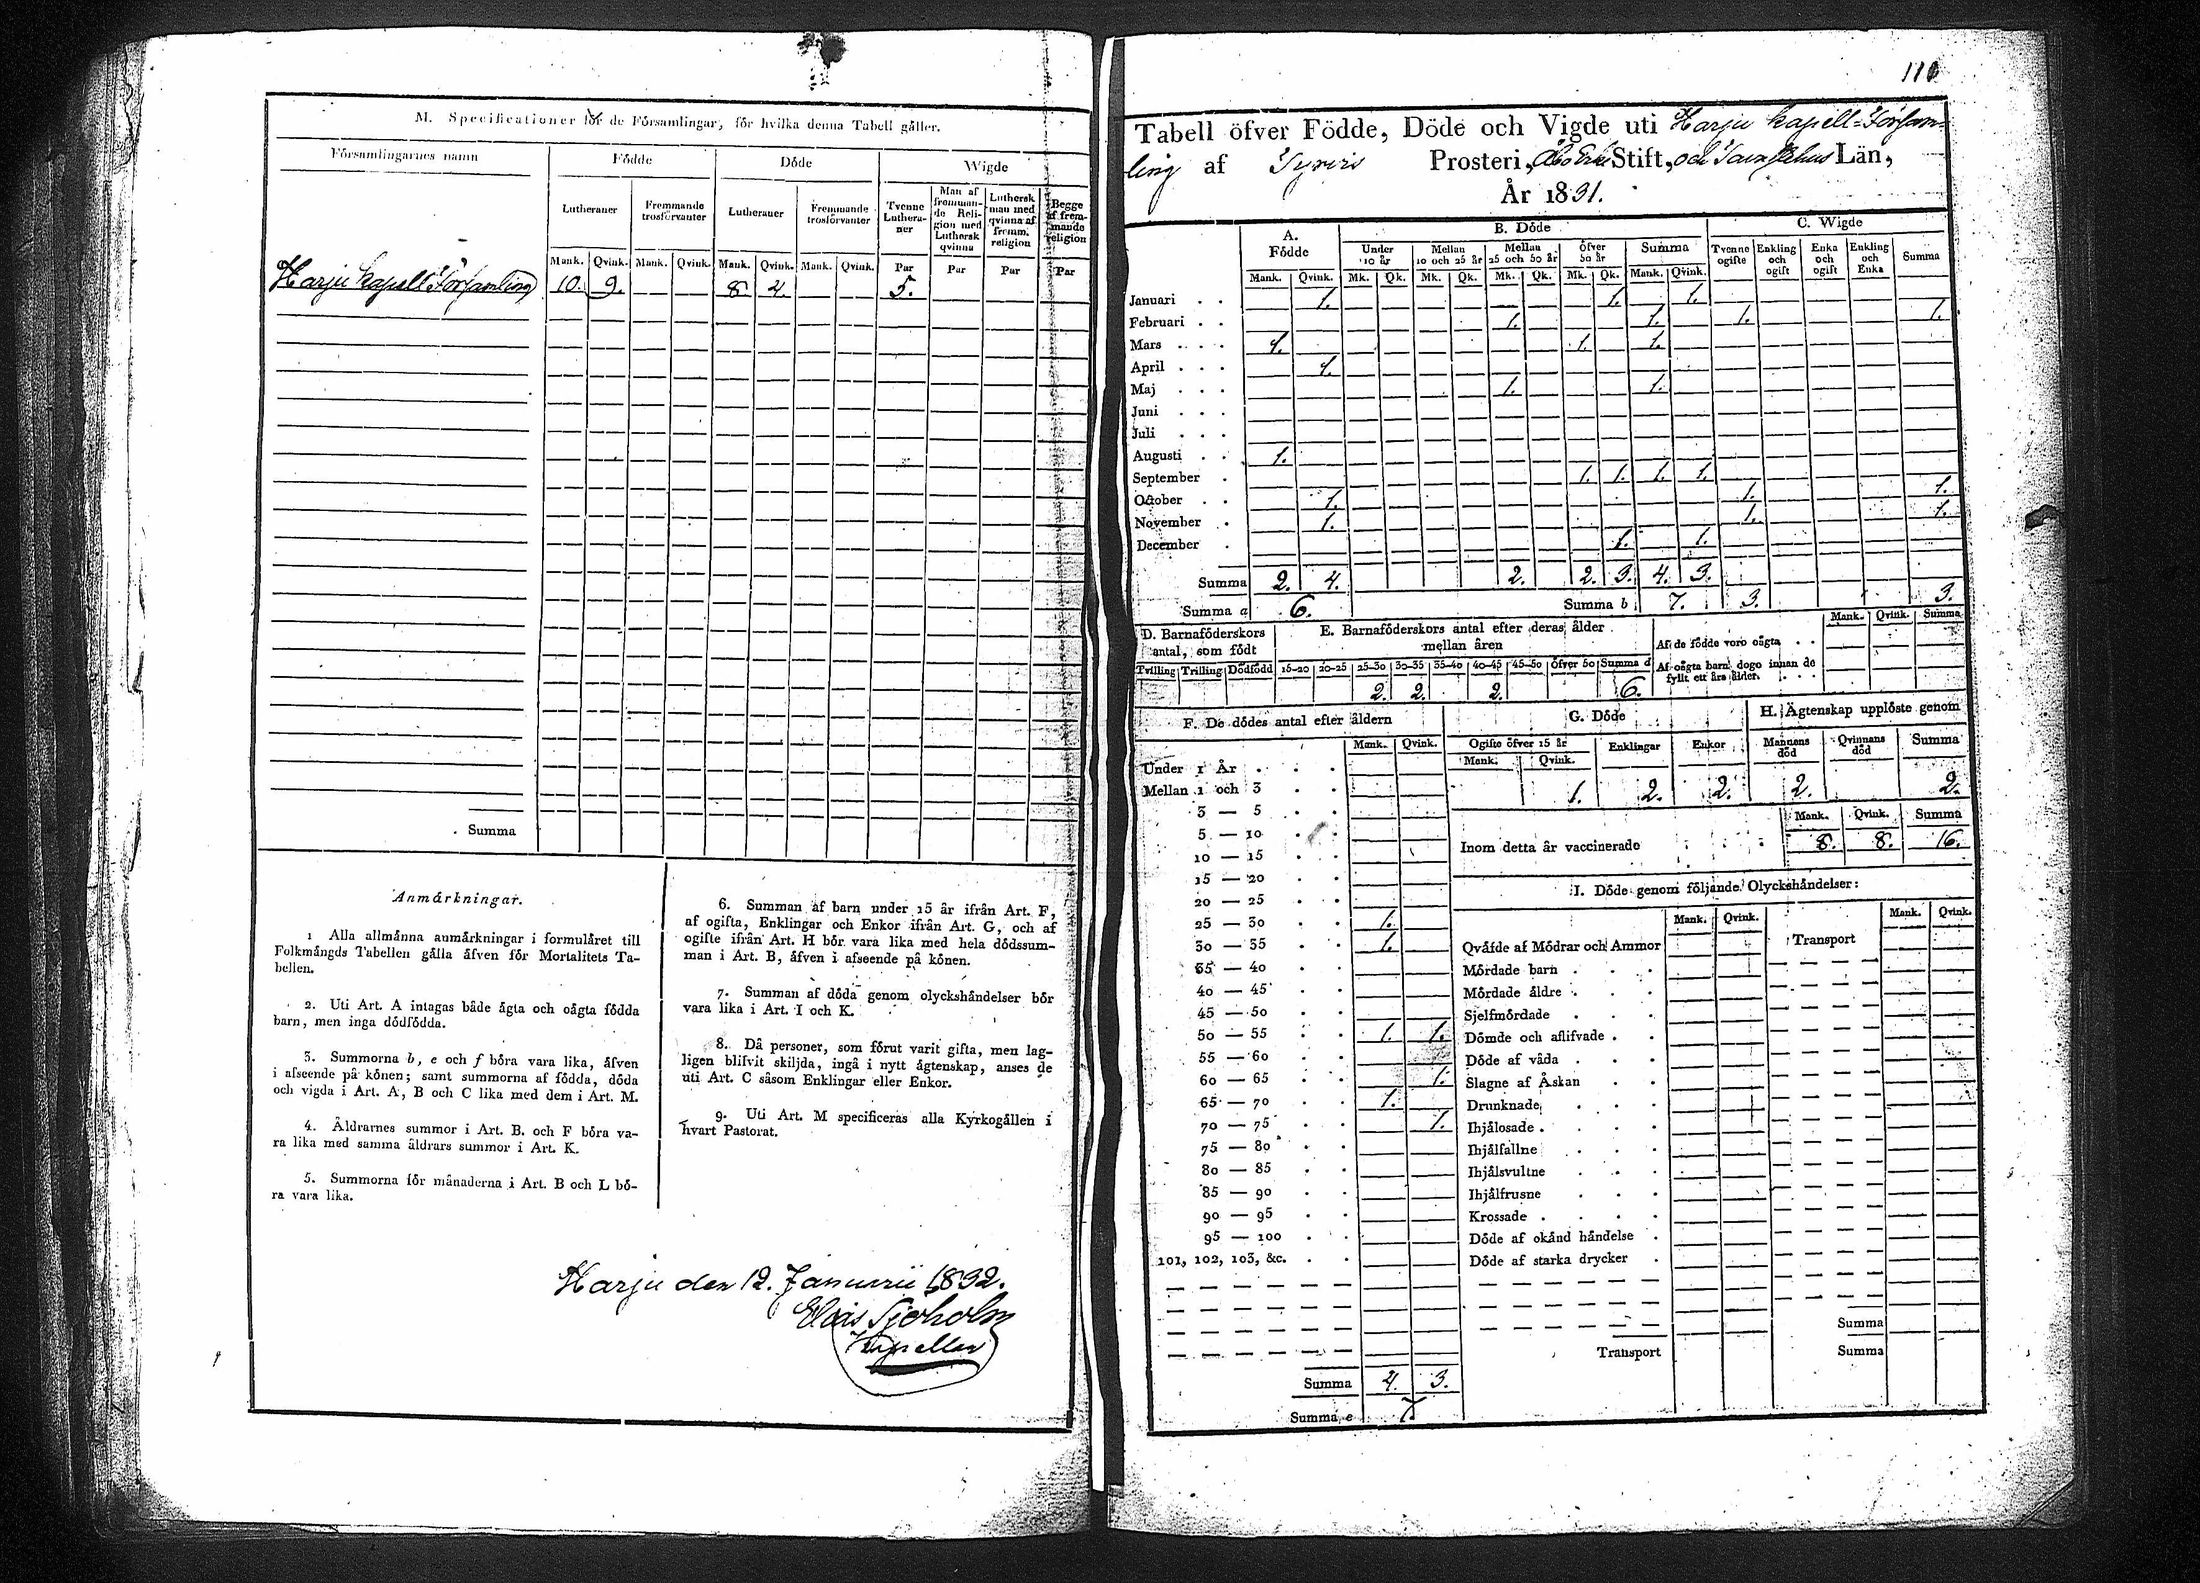 M. Specificationer för de Församlingar, för hvilka denna Tabell gäller.
Församlingarnes namn
Födde
Döde
Wigde
Lutheraner
Fremmande trosförvanter
Lutheraner
Fremmande trosförvanter
Tvenne Lutheraner
Man af fremmande Religion med Luthersk qvinna
Luthersk man med qvinna af fremm. religion
Begge af fremmande religion
Mank. Qvink. Mank. Qvink. Mank. Qvink. Mank. Qvink. Par Par Par Par
Harju kapell Församling 10. 9. 8. 4. 5.
Summa
Anmärkningar.
1 Alla allmänna anmärkningar i formuläret till
Folkmängds Tabellen gälla äfven för Mortalitets Ta-
bellen.
2. Uti Art. A intagas både ägta och oägta födda
barn, men inga dödfödda.
3. Summorna b, e och f böra vara lika, äfven
i afseende på könen; samt summorna af födda, döda
och vigda i Art. A, B och C lika med dem i Art. M.
4. Åldrarnes summor i Art. B. och F böra va-
ra lika med samma åldrars summor i Art. K.
5. Summorna för månaderna i Art. B och L bö-
ra vara lika.
6. Summan af barn under 15 år ifrån Art. F,
af ogifta, Enklingar och Enkor ifrån Art. G, och af
ogifte ifrån Art. H bör vara lika med hela dödssum-
man i Art. B, äfven i afseende på könen.
7. Summan af döda genom olyckshändelser bör
vara lika i Art. I och K.
8. Då personer, som förut varit gifta, men lag-
ligen blifvit skiljda, ingå i nytt ägtenskap, anses de
uti Art. C såsom Enklingar eller Enkor.
9. Uti Art. M specificeras alla Kyrkogällen i
hvart Pastorat.
Harju den 12. Januarii 1832.
Elias Sjöholm
Kapellan
Tabell öfver Födde, Döde och Vigde uti Harju kapell-Försam-
ling af Tyrvis Prosteri, Åbo Erke Stift, och Tavastehus Län,
År 1831.
A. Födde
B. Döde
C. Wigde
Under 10 år
Mellan 10 och 25 år
Mellan 25 och 50 år
Öfver 50 år
Summa
Tvenne ogifte
Enkling och ogift
Enka och ogift
Enkling och Enka
Summa
Mank. Qvink. Mk. Qk. Mk. Qk. Mk. Qk. Mk. Qk. Mank. Qvink.
Januari 1. 1. 1.
Februari 1. 1. 1. 1.
Mars 1. 1. 1.
April 1.
Maj 1. 1.
Juni
Juli
Augusti 1.
September 1. 1. 1. 1.
October 1. 1. 1.
November 1. 1. 1.
December 1. 1.
Summa 2. 4. 2. 2. 3. 4. 3.
Summa a 6. Summa b 7. 3. 3.
D. Barnaföderskors antal, som födt
Tvilling Trilling Dödfödd
E. Barnaföderskors antal efter deras ålder mellan åren
15-20 20-25 25-30 30-35 35-40 40-45 45-50 Öfver 50 Summa d
2. 2. 2. 6.
Mank. Qvink. Summa
Af de födde voro oägta
Af oägta barn dogo innan de
fyllt ett års ålder.
F. De dödes antal efter åldern
Mank. Qvink.
Under 1 År
Mellan 1 och 3
3 — 5
5 — 10
10 — 15
15 — 20
20 — 25
25 — 30 1.
30 — 35 1.
35 — 40
40 — 45
45 — 50
50 — 55 1. 1.
55 — 60
60 — 65 1.
65 — 70 1.
70 — 75 1.
75 — 80
80 — 85
85 — 90
90 — 95
95 — 100
101, 102, 103, &c.
Summa 4. 3.
Summa e 7
G. Döde
Ogifte öfver 15 år
Mank. Qvink.
Enklingar
Enkor
1. 2. 2.
H. Ägtenskap upplöste genom
Mannens död
Qvinnans död
Summa
2. 2.
Mank. Qvink. Summa
Inom detta år vaccinerade 8. 8. 16.
I. Döde genom följande Olyckshändelser:
Mank. Qvink. Mank. Qvink.
Qväfde af Mödrar och Ammor
Transport
Mördade barn
Mördade äldre
Sjelfmördade
Dömde och aflifvade
Döde af våda
Slagne af Åskan
Drunknade
Ihjälosade
Ihjälfallne
Ihjälsvultne
Ihjälfrusne
Krossade
Döde af okänd händelse
Döde af starka drycker
Summa
Transport
Summa